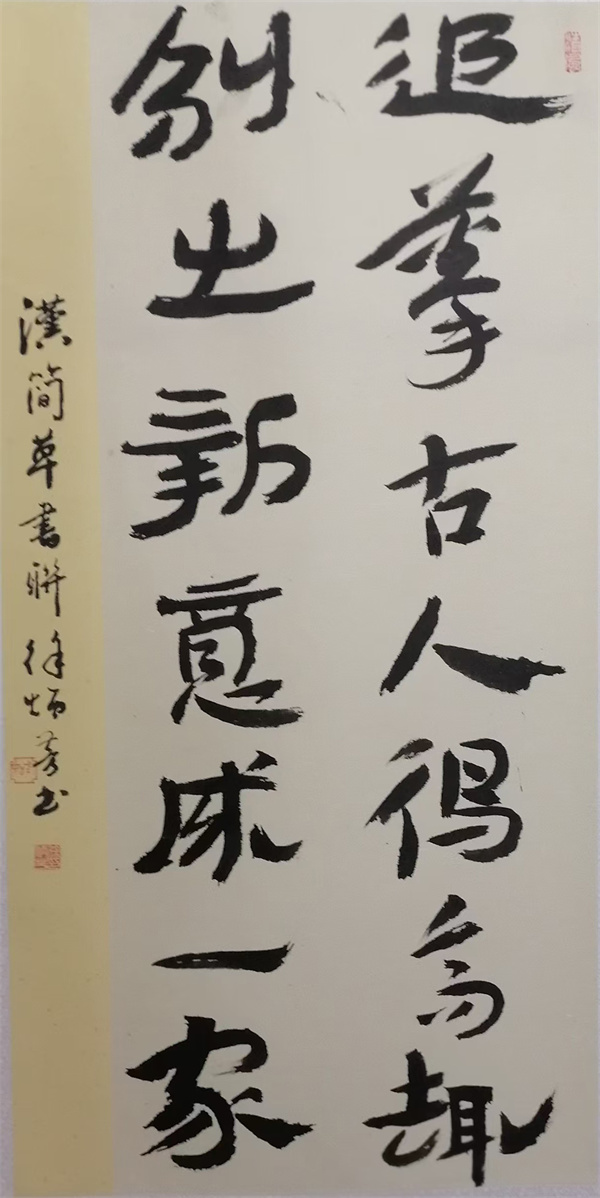 追摹古人得高趣
創出新意成一家
漢簡草書聯 徐炳芳书